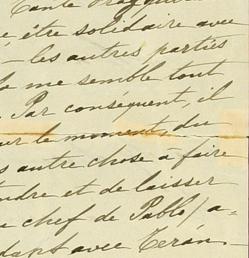 être solidaire avec
les autres parties
la me semble tout
Par conséquent, il
ur le moment, du
s autre chose à faire
ndre et de laisser
u chef de Pablo / a-
dant avec Terán.